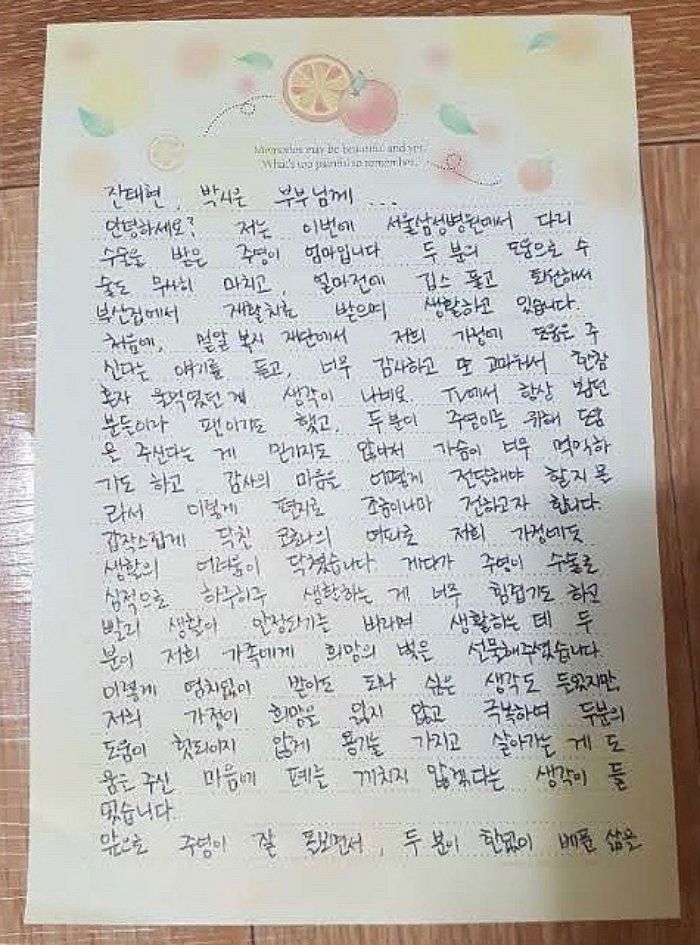 Memories may be beautiful and yet.
What's too painful to remember.
진태현, 박시은 부부님께 ...
안녕하세요? 저는 이번에 서울삼성병원에서 다리
수술을 받은 주영이 엄마입니다. 두 분의 도움으로 수
술도 무사히 마치고, 얼마전에 깁스 풀고 퇴원해서
부산집에서 재활치료 받으며 생활하고 있습니다.
처음에, 밀알 복지 재단에서 저희 가정에 도움을 주
신다는 얘기를 듣고, 너무 감사하고 또 고마워서 한참
혼자 울먹였던 게 생각이 나네요. TV에서 항상 봤던
분들이라 팬이기도 했고, 두 분이 주영이를 위해 도움
을 주신다는 게 믿기지도 않아서 가슴이 너무 먹먹하
기도 하고 감사의 마음을 어떻게 전달해야 할지 몰
라서 이렇게 편지로 조금이나마 전하고자 합니다.
갑작스럽게 닥친 코로나의 여파로 저희 가정에도
생활의 어려움이 닥쳤습니다. 게다가 주영이 수술로
심적으로 하루하루 생활하는 게 너무 힘겹기도 하고
빨리 생활이 안정되기를 바라며 생활하는 데 두
분이 저희 가족에게 희망의 빛을 선물해주셨습니다.
이렇게 염치없이 받아도 되나 싶은 생각도 들었지만,
저희 가정이 희망을 잃지 않고 극복하며 두분의
도움이 헛되이지 않게 용기를 가지고 살아가는 게 도
움을 주신 마음에 폐를 끼치지 않겠다는 생각이 들
었습니다.
앞으로 주영이 잘 돌보면서, 두 분이 한없이 베푼 삶을